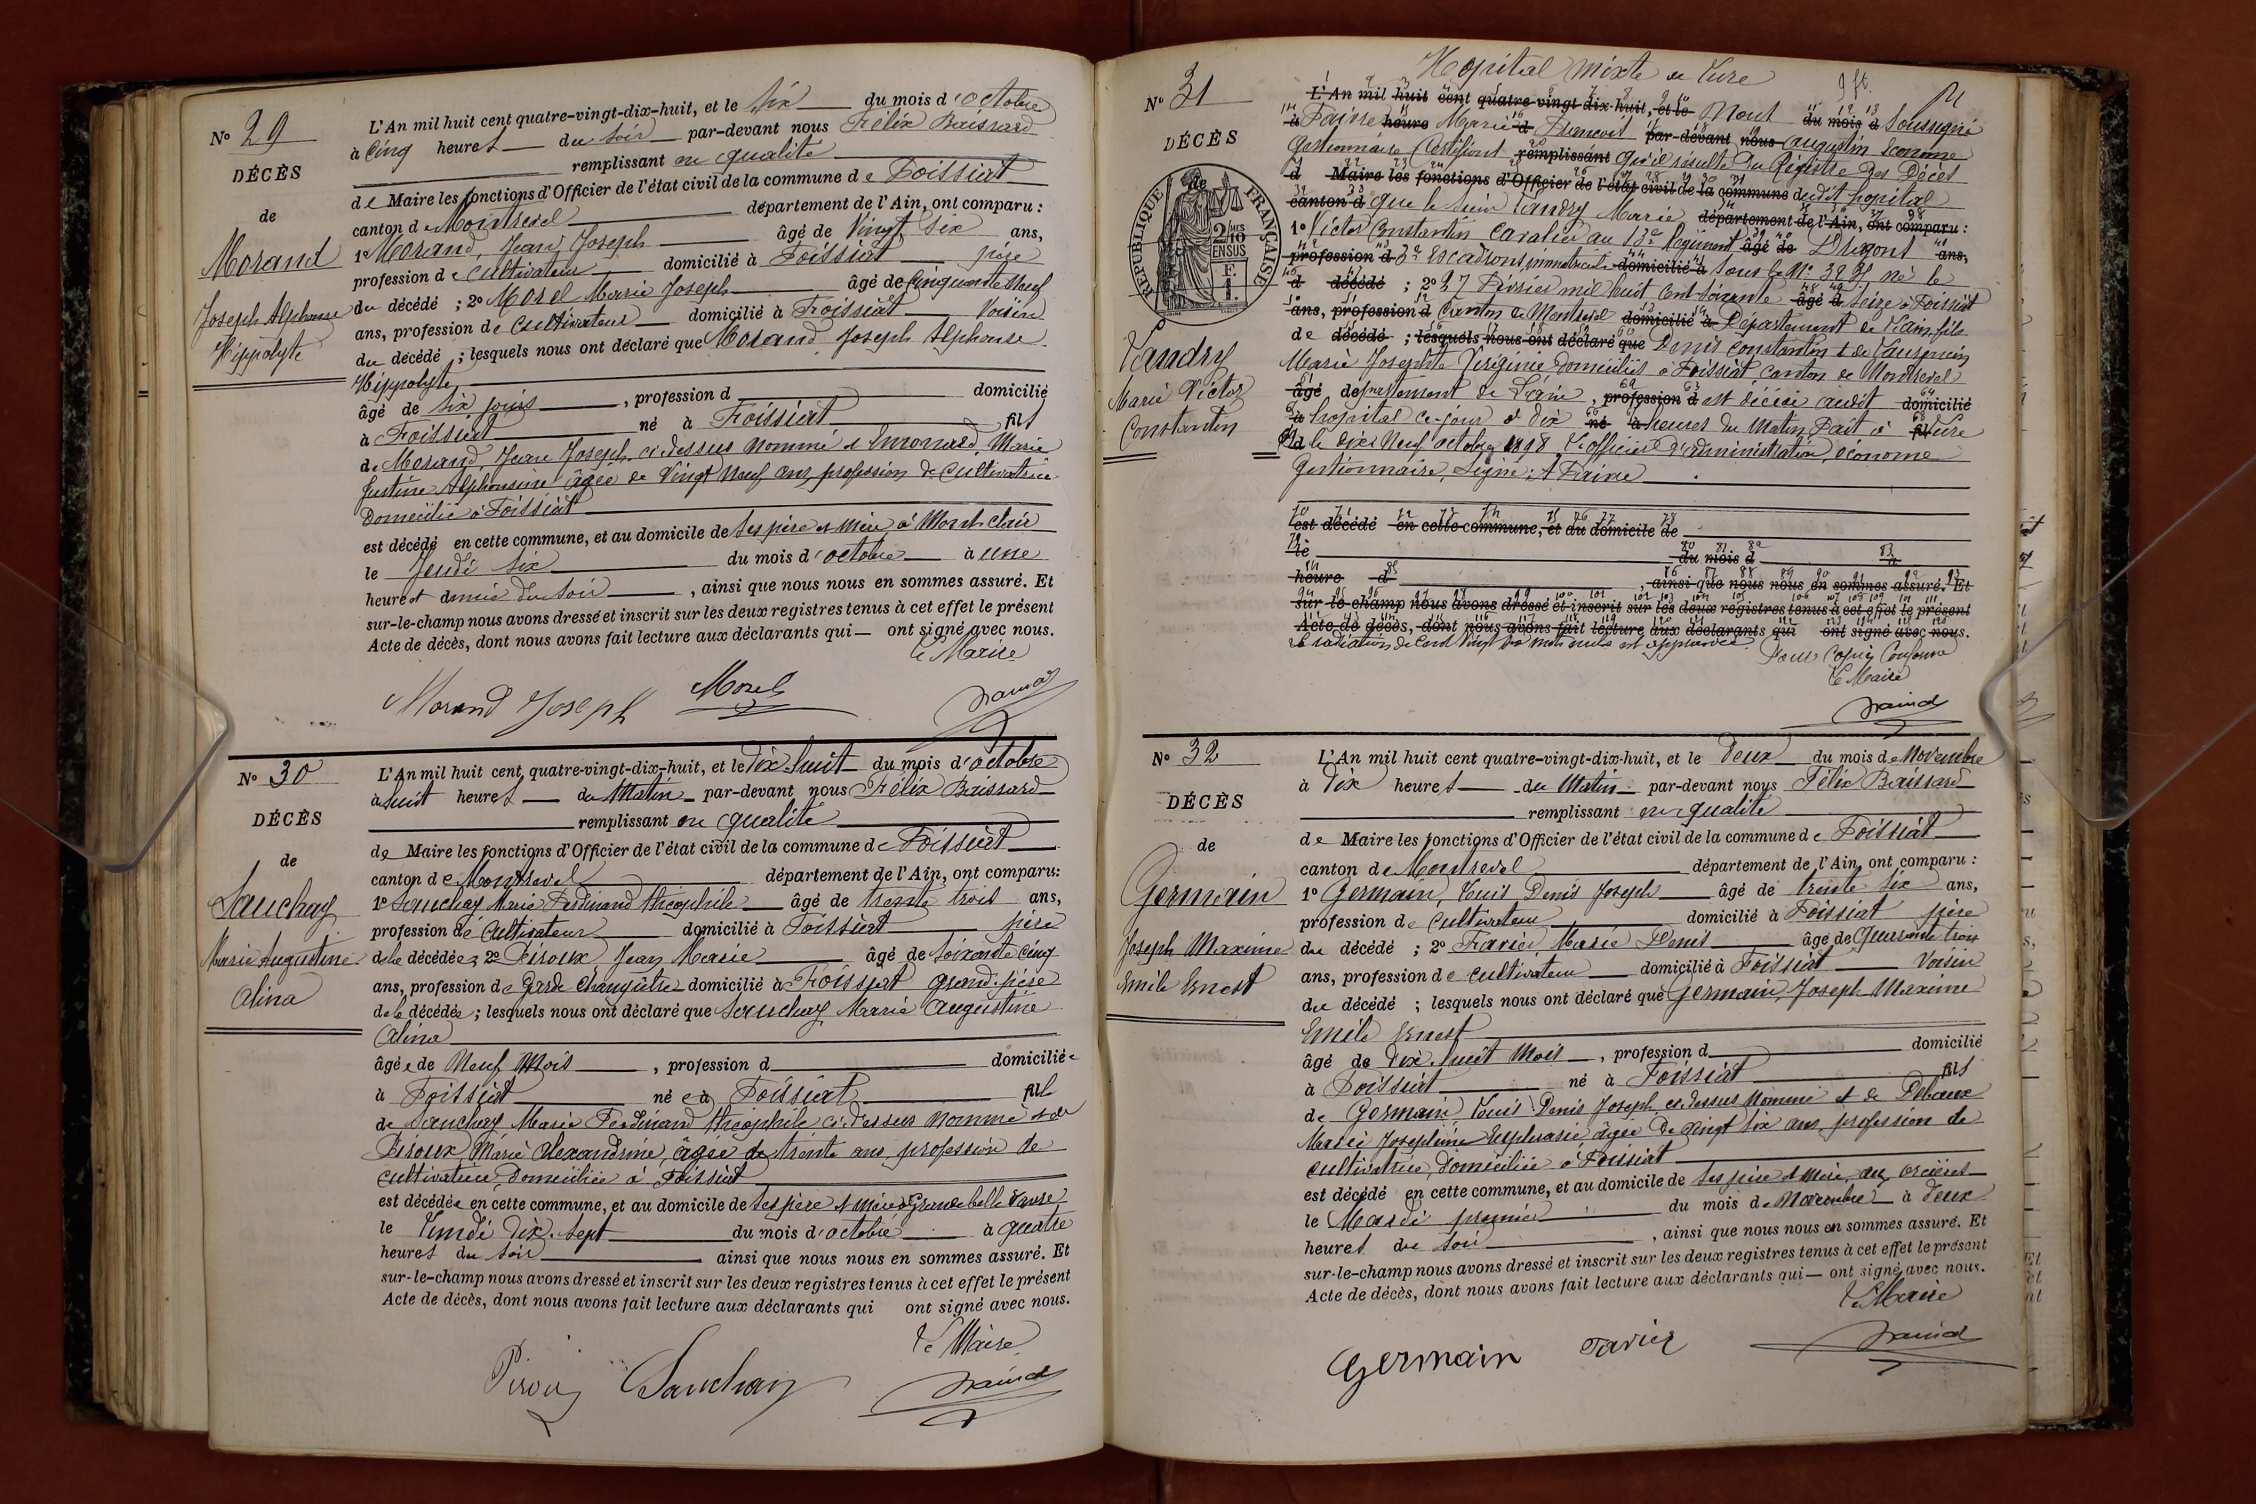 N° 29
DÉCÈS
de
Morand
Joseph Alphonse
Hippolyte
L'An mil huit cent quatre-vingt-dix-huit, et le six du mois d'octobre
à Cinq heures du soir par-devant nous Félix Baissard
remplissant en qualité
de Maire les fonctions d'Officier de l'état civil de la commune de Foissiat
canton de Montrevel département de l'Ain, ont comparu :
1° Morand, Jean Joseph âgé de Vingt six ans,
profession de cultivateur domicilié à Foissiat père
du décédé ; 2° Morel Marie Joseph âgé de Cinquante neuf
ans, profession de cultivateur domicilié à Foissiat Voisin
du décédé ; lesquels nous ont déclaré que Morand, Joseph Alphonse
Hippolyte
âgé de six jours , profession d domicilié
à Foissiat né à Foissiat fils
de Morand, Jean Joseph ci-dessus nommé et Emonard, Marie
Justine Alphonsine âgée de Vingt neuf ans, profession de cultivatrice
Domiciliée à Foissiat
est décédé en cette commune, et au domicile de ses père et mère à Montclair
le Jeudi six du mois d'octobre à une
heures et demie du soir , ainsi que nous nous en sommes assuré. Et
sur-le-champ nous avons dressé et inscrit sur les deux registres tenus à cet effet le présent
Acte de décès, dont nous avons fait lecture aux déclarants qui — ont signé avec nous.
Le Maire
Morand Joseph Morel
N° 30
DÉCÈS
de
Sauchay
Marie Augustine
Alina
L'An mil huit cent quatre-vingt-dix-huit, et le Dix huit du mois d'octobre
à huit heures du Matin par-devant nous Félix Baissard
remplissant en qualité
de Maire les fonctions d'Officier de l'état civil de la commune de Foissiat
canton de Montrevel département de l'Ain, ont comparu:
1° Sauchay Marie Ferdinand Théophile âgé de trente trois ans,
profession de Cultivateur domicilié à Foissiat père
de la décédée; 2° Piroux Jean Marie âgé de soixante cinq
ans, profession de Garde champêtre domicilié à Foissiat grand-père
de la décédée ; lesquels nous ont déclaré que Sauchay Marie Augustine
Alina
âgée de Neuf Mois , profession d domiciliée
à Foissiat née à Foissiat fille
de Sauchay Marie Ferdinand Théophile ci-dessus nommé et de
Piroux, Marie Alexandrine, âgée de trente ans, profession de
cultivatrice, Domiciliée à Foissiat
est décédée en cette commune, et au domicile de ses père et mère à Grande belle Vavre
le Lundi dix-sept du mois d'octobre à quatre
heures du soir ainsi que nous nous en sommes assuré. Et
sur-le-champ nous avons dressé et inscrit sur les deux registres tenus à cet effet le présent
Acte de décès, dont nous avons fait lecture aux déclarants qui ont signé avec nous.
Le Maire
Piroux Sauchay
Hopital Mixte de Lure
N° 31
DÉCÈS
de
RÉPUBLIQUE FRANÇAISE
2/10 EN SUS
F. 1
Vandry
Marie Victor
Constantin
L'An mil huit cent quatre-vingt-dix-huit, et le Nous du mois d soussigné
à Faivre heure Marie d François par-devant nous Augustin Econome
Gestionnaire Certifions remplissant qu'il résulte du Régistre des Décès
d Maire les fonctions d'Officier de l'état civil de la commune dudit hopital
canton d que le sieur Vandry Marie département de l'Ain, ont comparu :
1° Victor Constantin Cavalier au 13e Régiment âgé de Dragons ans,
profession d 3e Escadrons, immatriculé domicilié à sous le N° né le
d décédé ; 2° 27 Février mil huit Cent soixante âgé d seize à Foissiat
ans, profession d Canton de Montrevel domicilié à Département de l'Ain, fils
de décédé ; lesquels nous ont déclaré que Denis Constantin et de
Marie Josephte Virginie Domiciliés à Foissiat canton de Montrevel
âgé département de L'ain , profession d est décédé audit domicilié
à hopital ce jour à dix né à heures du Matin Fait à fils Lure
d le dix Neuf octobre 1898 L'officier d'administration, économe
Gestionnaire, Signé : A Faivre
est décédé en cette commune, et au domicile de
le du mois d à
heure d , ainsi que nous nous en sommes assuré. Et
sur-le-champ nous avons dressé et inscrit sur les deux registres tenus à cet effet le présent
Acte de décès, dont nous avons fait lecture aux déclarants qui ont signé avec nous.
La radiation de Cent Vingt mots nuls est approuvée. Pour Copie Conforme
Le Maire
N° 32
DÉCÈS
de
Germain
Joseph Maxime
Emile Ernest
L'An mil huit cent quatre-vingt-dix-huit, et le Deux du mois de Novembre
à Dix heures du Matin par-devant nous Félix Baissard
remplissant en qualité
de Maire les fonctions d'Officier de l'état civil de la commune de Foissiat
canton de Montrevel département de l'Ain, ont comparu :
1° Germain, Louis Denis Joseph âgé de trente six ans,
profession de Cultivateur domicilié à Foissiat père
du décédé ; 2° Favier Marie Denis âgé de Quarante trois
ans, profession de cultivateur domicilié à Foissiat Voisin
du décédé ; lesquels nous ont déclaré que Germain, Joseph Maxime
Emile Ernest
âgé de Dix huit Mois , profession d domicilié
à Foissiat né à Foissiat fils
de Germain, Louis Denis Joseph ci-dessus Nommé et de
Marie Josephine Euphrasie, âgée de Vingt six ans, profession de
cultivatrice, Domiciliée à Foissiat
est décédé en cette commune, et au domicile de ses père et mère, aux orcières
le Mardi premier du mois de Novembre à Deux
heures du soir , ainsi que nous nous en sommes assuré. Et
sur-le-champ nous avons dressé et inscrit sur les deux registres tenus à cet effet le présent
Acte de décès, dont nous avons fait lecture aux déclarants qui — ont signé avec nous.
Le Maire
Germain Favier